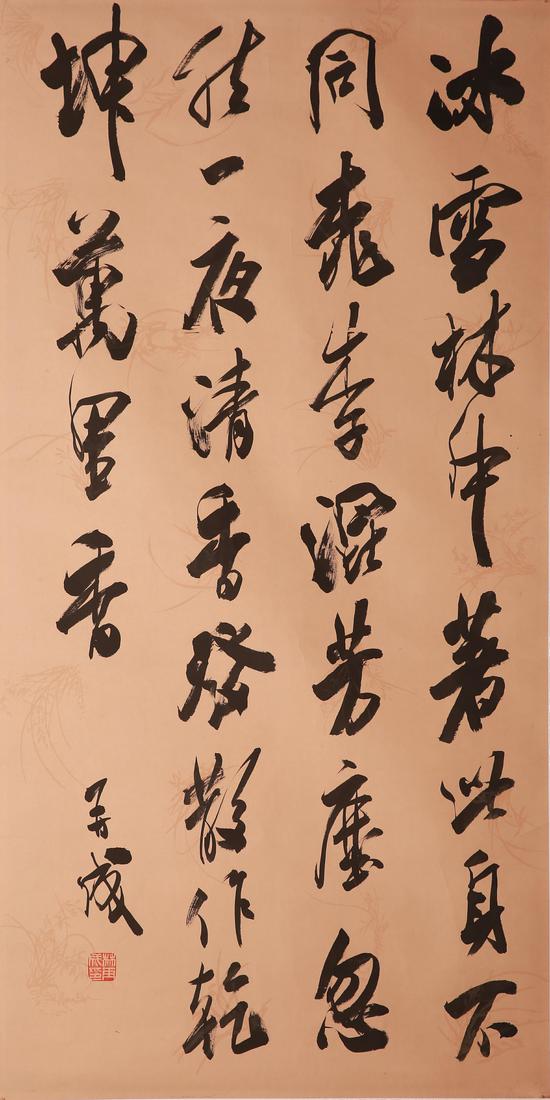 冰雪林中著此身不
同桃李混芳塵忽
然一夜清香發散作乾
坤萬里香
成